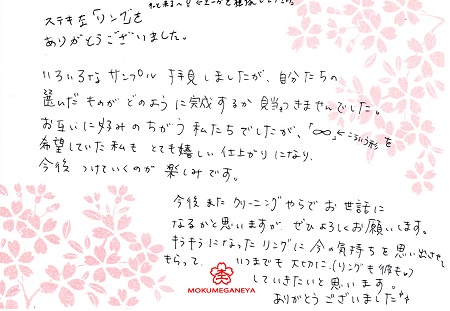 ステキな「リング」を
ありがとうございました。
いろいろなサンプル 拝見しましたが、自分たちの
選んだものがどのように完成するか見当つきませんでした。
お互いに好みのちがう私たちでしたが、「∞」←こういう形を
希望していた私も とても嬉しい仕上がりになり、
今後 つけていくのが 楽しみです。
今後また クリーニングやらで お世話に
なるかと思いますが、ぜひよろしくお願いします。
キラキラになったリングに今の気持ちを思い出させて
もらって、 いつまでも 大切に、(リングも彼も♡)
していきたいと思います。
ありがとうございました
MOKUMEGANEYA